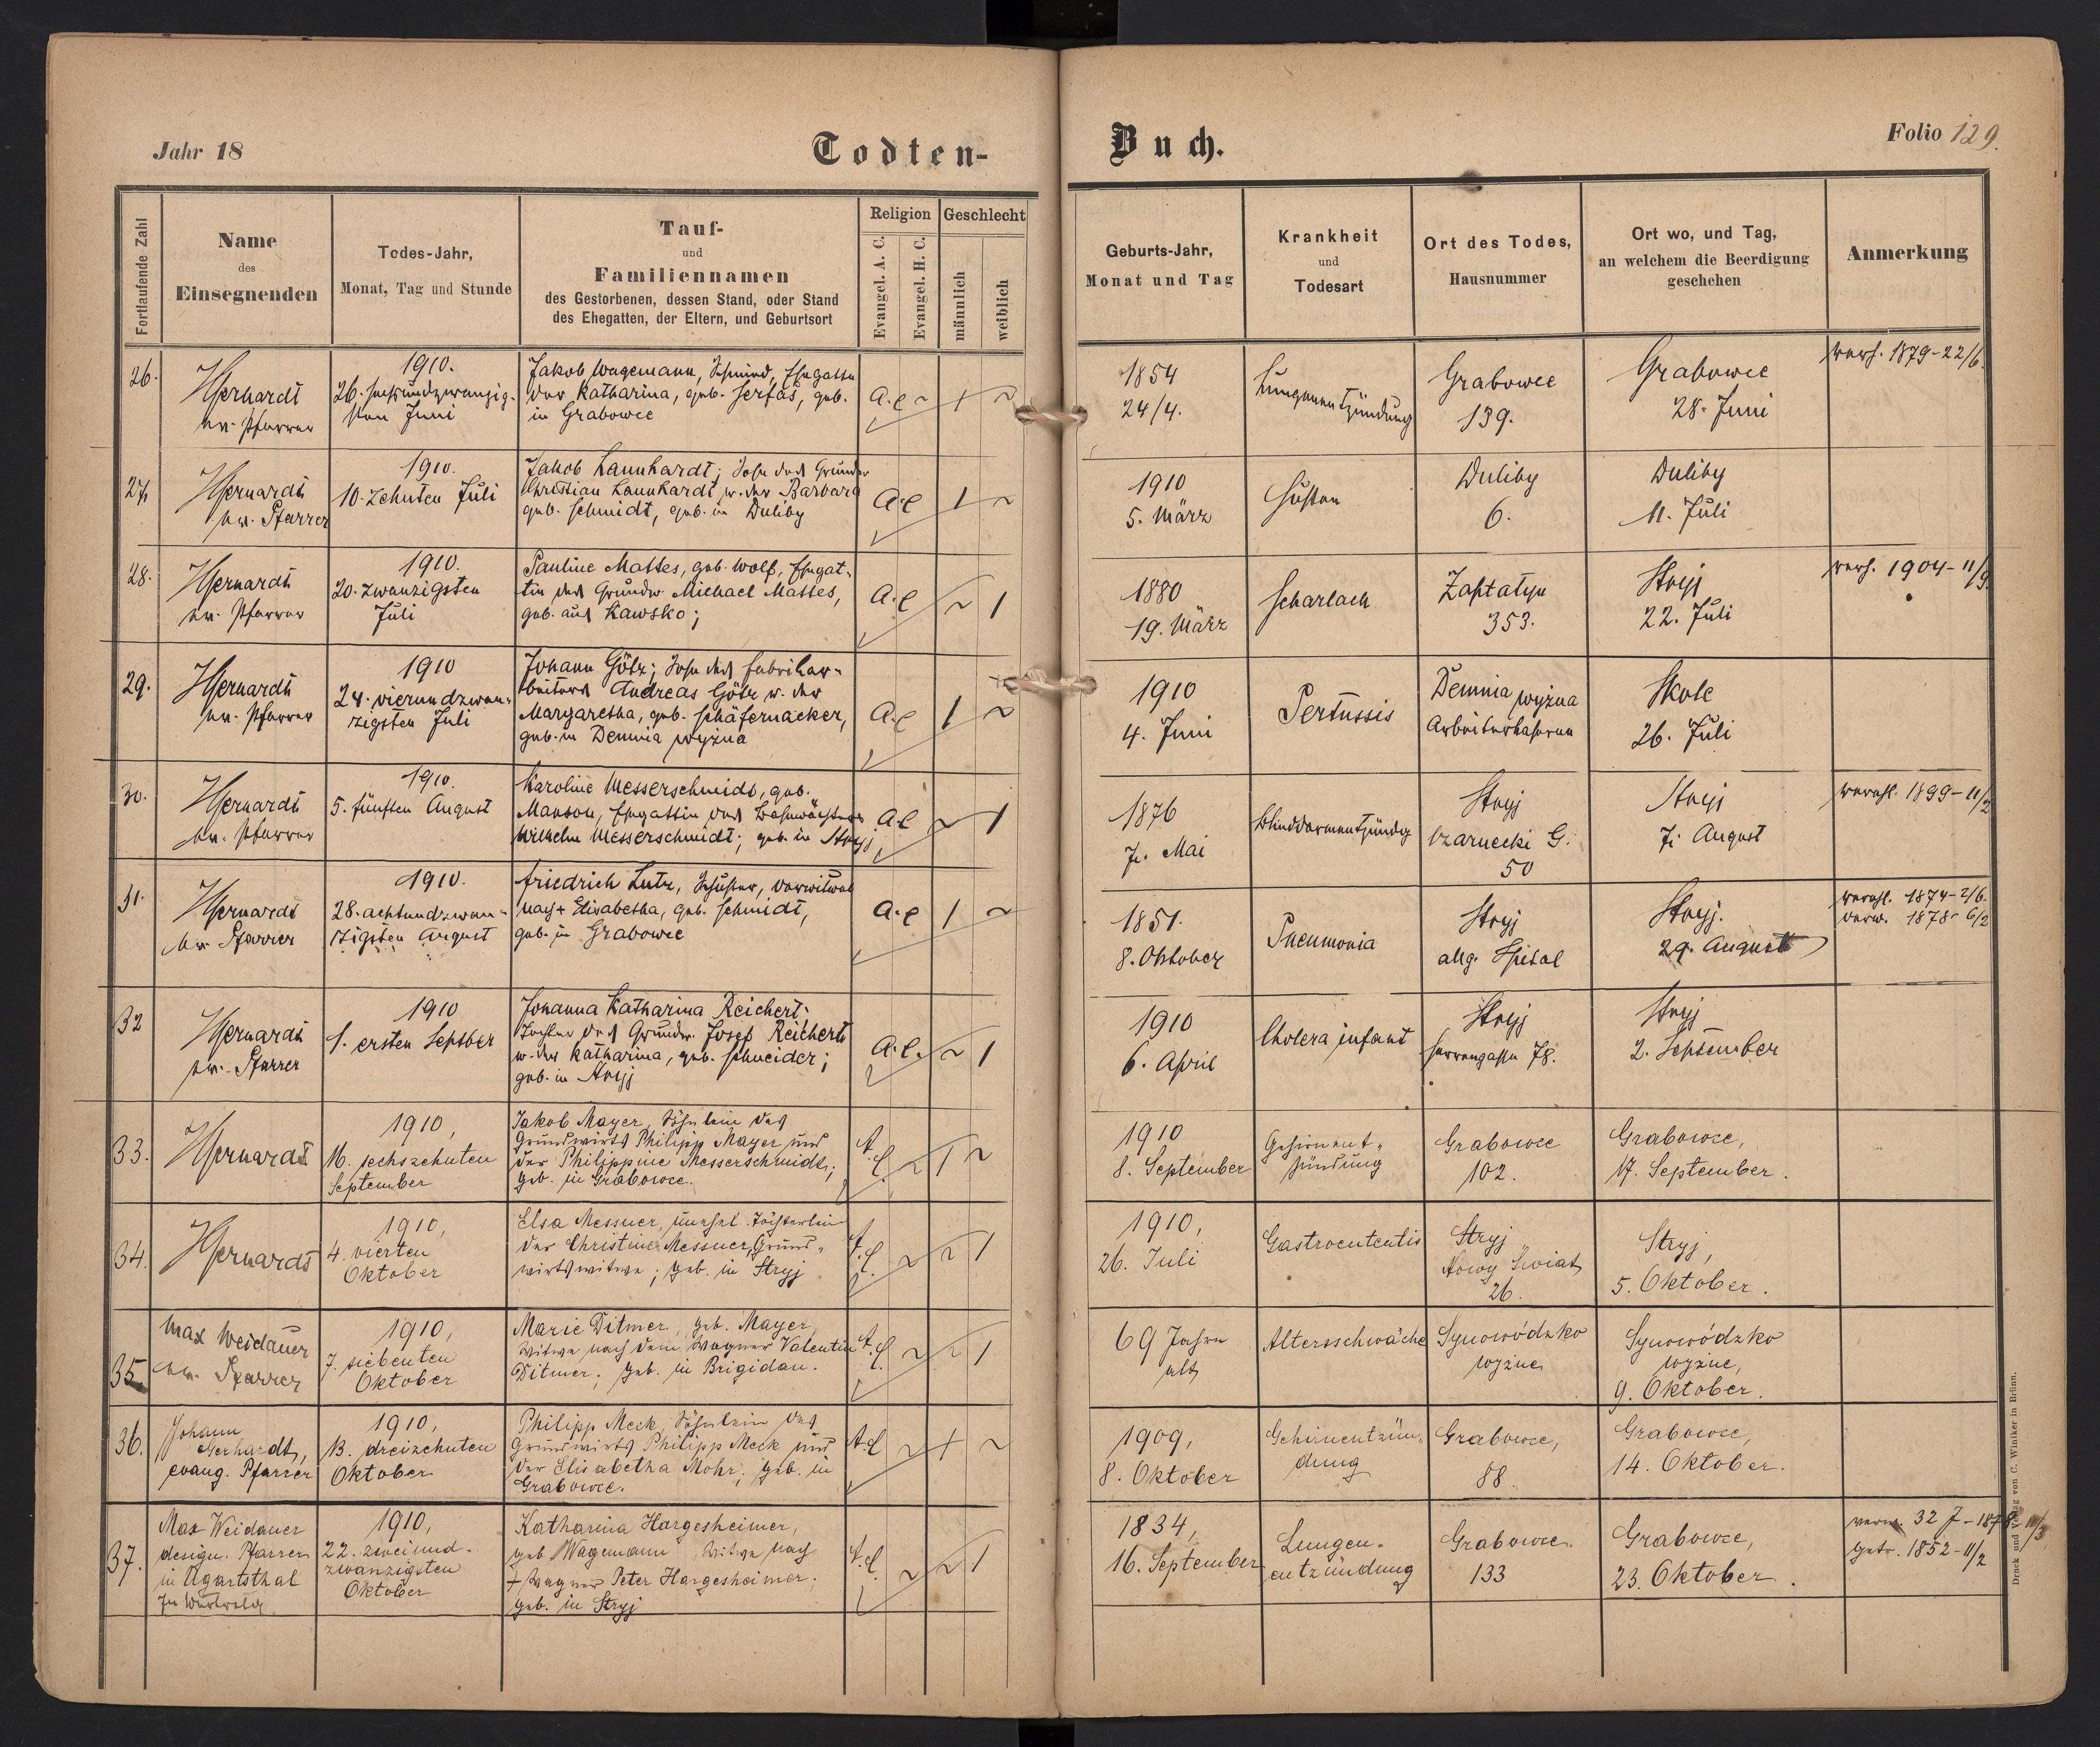 Jahr 18
Todten-
Buch.
Folio 129.
Fortlaufende Zahl
Name
des
Einsegnenden
Todes-Jahr,
Monat, Tag und Stunde
Tauf-
und
Familiennamen
des Gestorbenen, dessen Stand, oder Stand
des Ehegatten, der Eltern, und Geburtsort
Religion
Evangel. A. C.
Evangel. H. C.
Geschlecht
männlich
weiblich
Geburts-Jahr,
Monat und Tag
Krankheit
und
Todesart
Ort des Todes,
Hausnummer
Ort wo, und Tag,
an welchem die Beerdigung
geschehen
Anmerkung
26.
ev. Pfarrer
1910.
26. sechsundzwanzig-
sten Juni
Jakob Wagemann, Schmied, Ehegatte
der Katharina, geb. Serfas, geb.
in Grabowce
A.C ~ 1 ~
1854
24/4.
Lungenentzündung
Grabowce
139.
Grabowce
28. Juni
verh. 1879-22/6.
27.
ev. Pfarrer
1910.
10. zehnten Juli
Jakob Lannhardt; Sohn des Grundw
Christian Lannhardt u. der Barbara
geb. Schmidt, geb. in Duliby
A.C 1 ~
1910
5. März
Husten
Duliby
6.
Duliby
11. Juli
28.
ev. Pfarrer
1910.
20. zwanzigsten
Juli
Pauline Mattes, geb. Wolf, Ehegat-
tin des Grundw. Michael Mattes,
geb. aus Kawsko;
A.C ~ 1
1880
19. März
Scharlach
Zaptatyn
353.
Stryj
22. Juli
verh. 1904-11/9.
29.
ev. Pfarrer
1910
24. vierundzwan-
zigsten Juli
Johann Götz; Sohn des Fabrikar-
beiters Andreas Götz u. der
Margaretha, geb. Schäfernacker,
geb. in Demnia wyżna
A.C 1 ~
1910
4. Juni
Pertussis
Demnia wyżna
Arbeiterkaserne
Skole
26. Juli
30.
ev. Pfarrer
1910.
5. fünften August
Karoline Messerschmidt, geb.
Manson, Ehegattin des Bahnwächters
Wilhelm Messerschmidt; geb. in Stryj
A.C ~ 1
1876
7. Mai
Blinddarmentzündg
Stryj
Czarnecki G.
50
Stryj
7. August
verehl. 1899-11/2
31.
ev. Pfarrer
1910.
28. achtundzwan-
zigsten August
Friedrich Lutz, Schuster, verwitwet
nach + Elisabetha, geb. Schmidt,
geb. in Grabowce
A.C 1 ~
1851.
8. Oktober
Pneumonia
Stryj
allg. Spital
Stryj.
29. August
verehl. 1874-2/6.
verw. 1878-6/2
32
ev. Pfarrer
1910
1. ersten Septber
Johanna Katharina Reichert;
Tochter des Grundw. Josef Reichert
u. der Katharina, geb. Schneider;
geb. in Stryj
A.C. ~ 1
1910
6. April
Cholera infant
Stryj
Herrengasse 78.
Stryj
2. September
33.
1910,
16. sechszehnten
September
Jakob Mayer, Söhnlein des
Grundwirts Philipp Mayer und
der Philippine Messerschmidt;
geb. in Grabowce.
A.C. ~ 1 ~
1910
8. September
Gehirnent-
zündung
Grabowce
102.
Grabowce,
17. September.
34.
1910,
4. vierten
Oktober
Elsa Messner, unehel. Töchterlein
der Christine Messner, Grund-
wirtswitwe; geb. in Stryj
A.C. ~ ~ 1
1910,
26. Juli
Gastroententis
Stryj
Nowy Swiat
26.
Stryj,
5. Oktober.
35.
Max Weidauer
ev. Pfarrer
1910,
7. siebenten
Oktober
Marie Ditmer, geb. Mayer,
Witwe nach dem Wagner Valentin
Ditmer; geb. in Brigidau.
A.C. ~ ~ 1
69 Jahre
alt
Altersschwäche
Synowódzko
wyżne
Synowódzko
wyżne,
9. Oktober.
36.
Johann
Gerhardt,
evang. Pfarrer
1910,
13. dreizehnten
Oktober
Philipp Meck, Söhnlein des
Grundwirts Philipp Meck und
der Elisabetha Mohr; geb. in
Grabowce.
A.C. ~ 1 ~
1909,
8. Oktober
Gehirnentzün-
dung
Grabowce,
88
Grabowce,
14. Oktober.
37.
Max Weidauer
design. Pfarrer
in Ugartsthal
1910,
22. zweiund-
zwanzigsten
Oktober
Katharina Hargesheimer,
geb. Wagemann, Witwe nach
+ Wagner Peter Hargesheimer.
geb. in Stryj
A.C. ~ ~ 1
1834,
16. September
Lungen-
entzündung
Grabowce
133
Grabowce,
23. Oktober.
getr. 1852-11/2
Druck und Verlag von C. Winiker in Brünn.